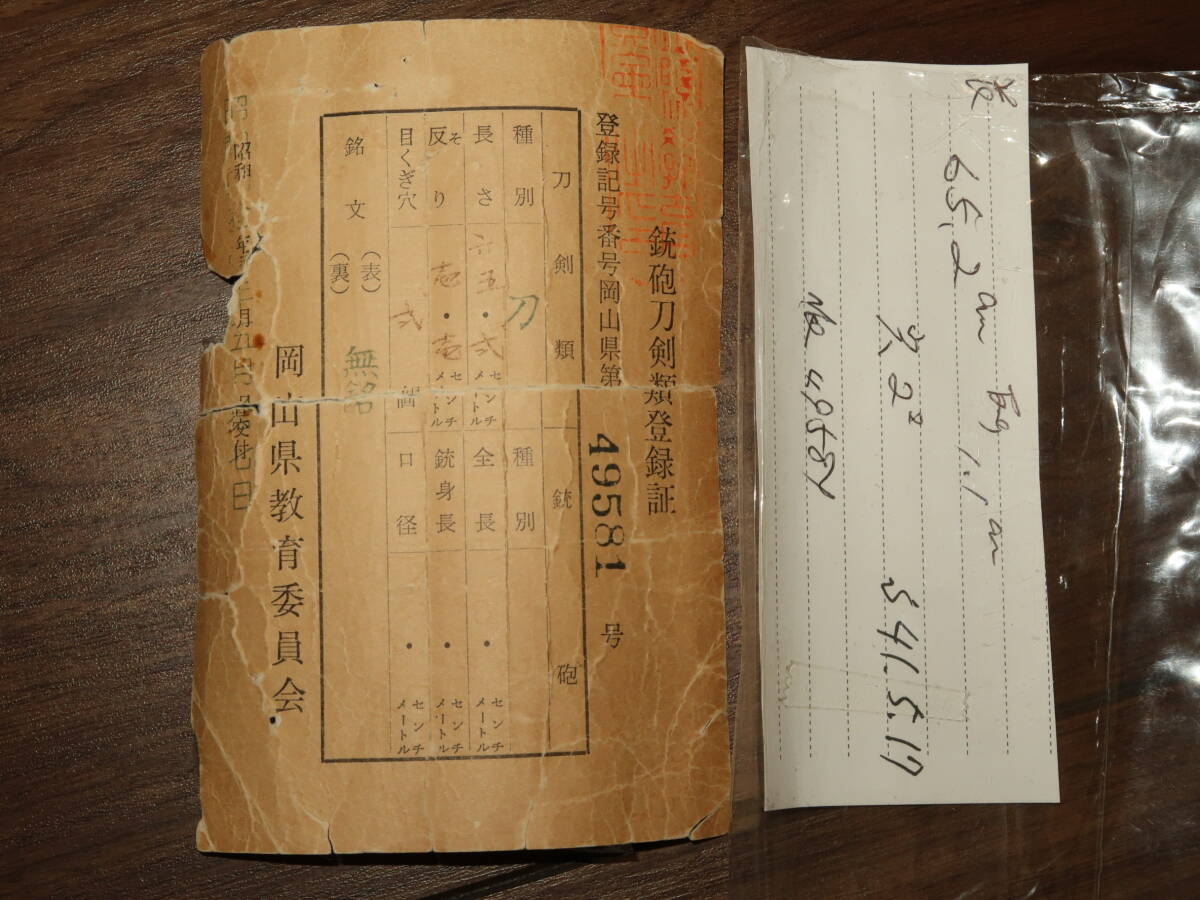 銃砲刀剣類登録証
登録記号番号岡山県第 49581 号
刀剣類 銃砲
種別 刀 種別
長さ 六五・弐 センチメートル 全長 ・ センチメートル
反り そ 壱・壱 センチメートル 銃身長 ・ センチメートル
目くぎ穴 弐個 口径 ・ センチメートル
銘文 (表) 無銘
(裏)
昭和 年 月 日 交付
岡山県教育委員会
長 65.2 cm 1.1 cm
穴 2コ S41.5.17
No 49581